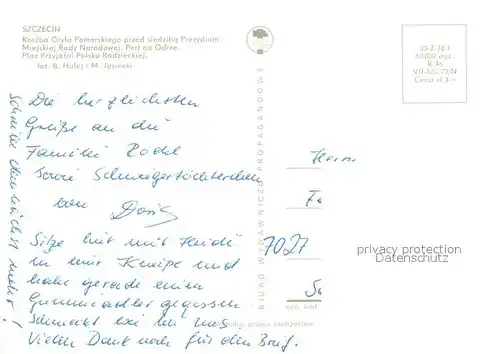 SZCZECIN
Rzeźba Gryfa Pomorskiego przed siedzibą Prezydium
Miejskiej Rady Narodowej. Port na Odrze.
Plac Przyjaźni Polsko Radzieckiej.
fot. B. Hulej i M. Jasiecki
53-Z-78 I
60.000 egz.
R 46
Cena zł 3,-
BIURO WYDAWNICZO PROPAGANDOWE
Die herzlichsten
Grüße an die
Familie
sowie Schwiegertöchterchen
von Doris
Sitze hier mit Heidi
in ner Kneipe und
habe gerade einen
Gummiadler gegessen
Schmeckt wie bei uns.
Vielen Dank noch für den Brief.
Schreibe demnächst mehr!
Herrn
7027
privacy protection
Datenschutz
prawa zastrzeżone